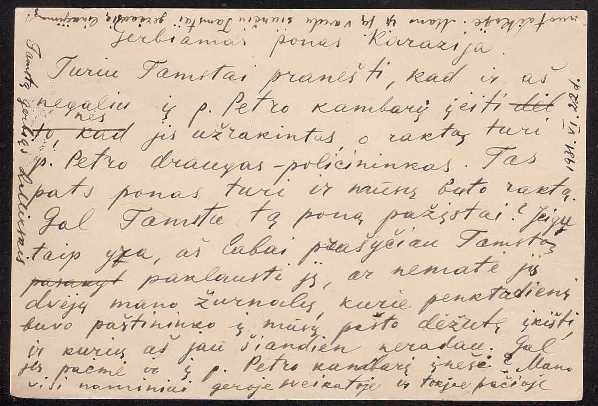 Gerbiamas ponas Kurazija
Turiu Tamstai pranešti, kad ir aš
negaliu į p. Petro kambarį įeiti dėl
to, kad nes jis užrakintas o raktą turi
p. Petro draugas-policininkas. Tas
pats ponas turi ir mūsų buto raktą.
Gal Tamsta tą poną pažįstai? Jeigu
taip yra, aš labai prašyčiau Tamstą
pasakyt paklausti jį, ar nematė jis
dviejų mano žurnalų, kurie penktadienį
buvo paštininko į mūsų pašto dėžutę įkišti,
ir kurių aš jau šiandien neradau. Gal
jis paėmė ir į p. Petro kambarį įnešė? Mano
visi naminiai geroje sveikatoje ir tokioje pačioje
nuotaikoje. Mano ir jų vardu siunčiu Tamstai
Tamstų
1931. VI. 22 d.